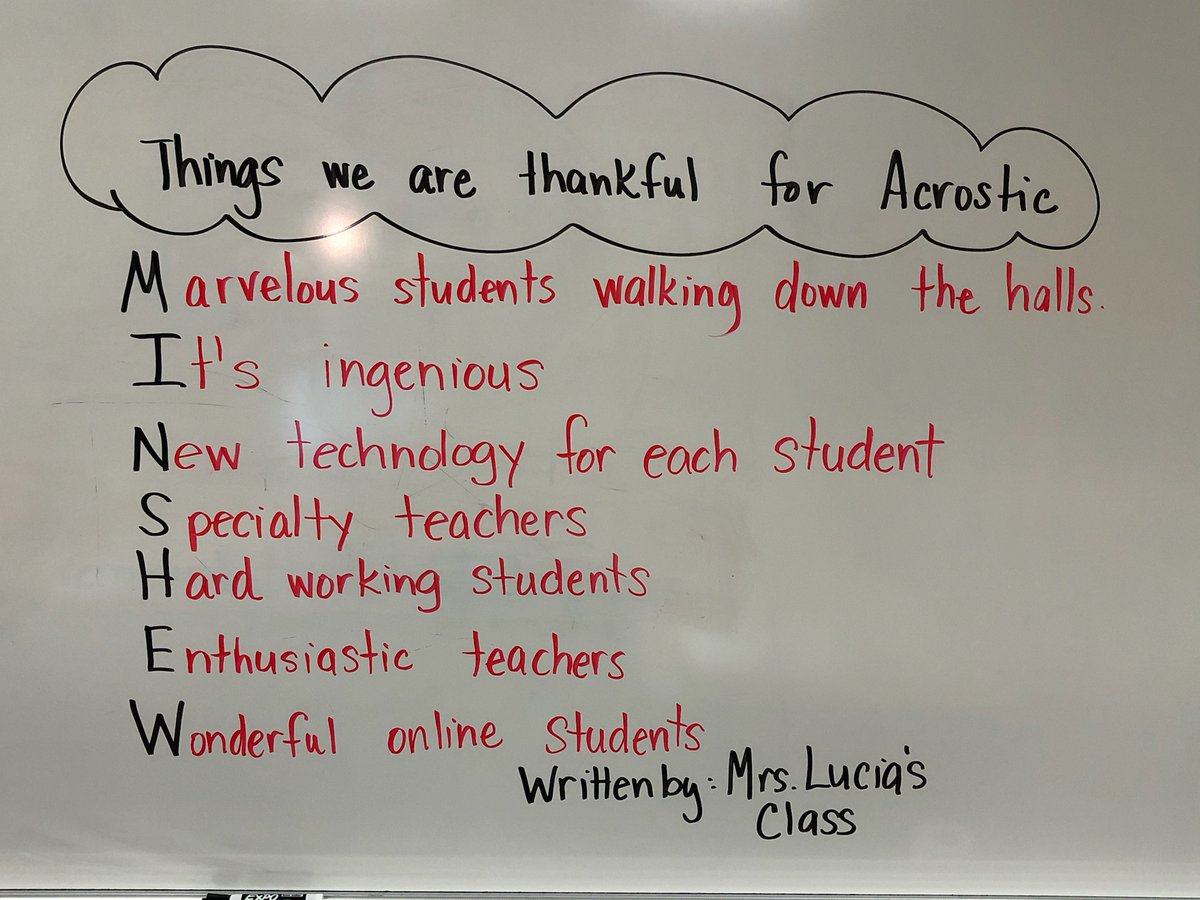 Things we are thankful for Acrostic
Marvelous students walking down the halls.
It's ingenious
New technology for each student
Specialty teachers
Hard working students
Enthusiastic teachers
Wonderful online students
Written by: Mrs. Lucia's
Class
EXPO